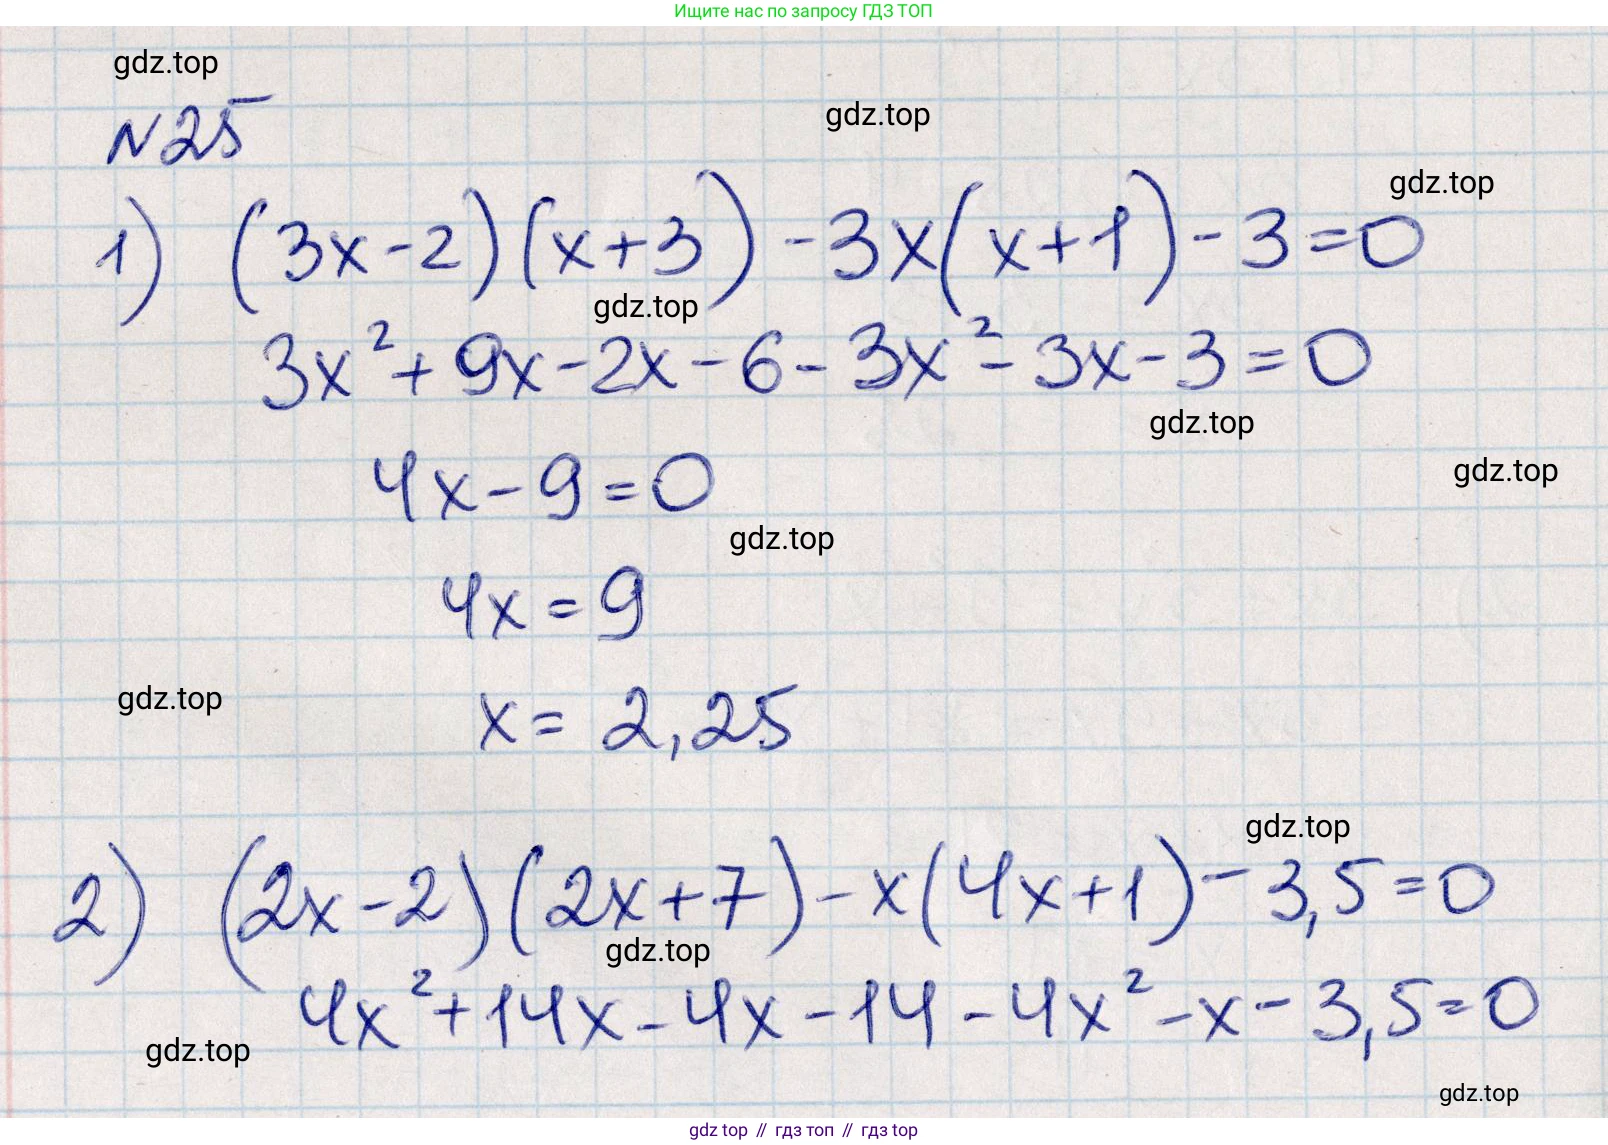 Ищите нас по запросу ГДЗ ТОП
gdz.top
gdz.top
№25
gdz.top
1) (3x-2)(x+3)-3x(x+1)-3=0
gdz.top
3x²+9x-2x-6-3x²-3x-3=0
gdz.top
4x-9=0
gdz.top
gdz.top
4x=9
gdz.top
x=2,25
gdz.top
2) (2x-2)(2x+7)-x(4x+1)-3,5=0
gdz.top
4x²+14x-4x-14-4x²-x-3,5=0
gdz.top
gdz.top
gdz top // гдз топ // гдз top